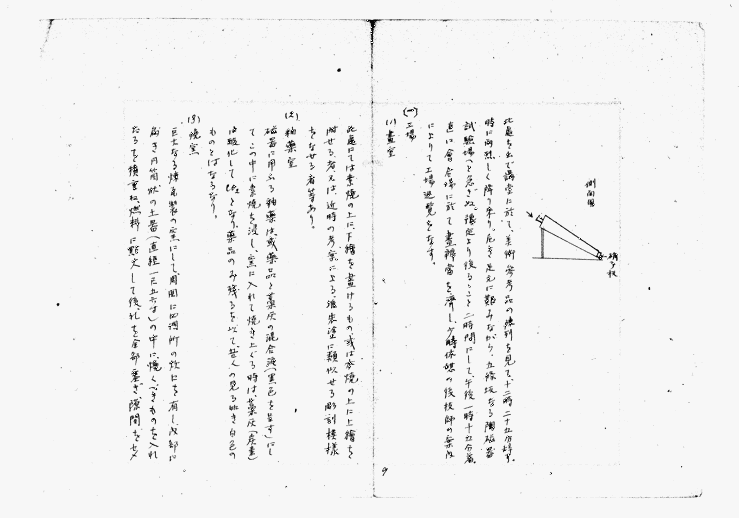 側面図
硝子板
此處を出で講堂に於て、美術參考品の陳列を見て、十二時二十五分辞す。
時に雨烈しく降り来り、危き足元に艱みながら、五條坂なる陶磁器
試驗場へと急ぎぬ。豫定より後るゝこと二時間にして、午後一時十五分着。
直に會合場に於て晝辨當を濟し、少時休憩の後技師の案内
によりて工場巡覽をなす。
(一) 工場
(1) 畫室
此處にては素燒の上に下繪を畫けるもの或は本燒の上に上繪を
附せる者又は近時の考案による塗に類似せる彫刻模様
をなせる者等あり。
(2) 釉藥室
磁器に用ふる釉藥は、或藥品と藁灰の混合液(黑色を呈す)にし
て この中に素燒を浸し、窯に入れて燒き上ぐる時は、藁灰(炭素)
は酸化して となり藥品のみ残るを以て吾人の見る如き白色の
ものとはなるなり。
(3) 燒窯
巨大なる煉瓦製の窯にして周圍に四週所の焚口を有し、内部に
圓き円筒狀の土器(直徑一尺五六寸)の中に燒くべきものを入れ
たるを積重ね、燃料に點火して後孔を全部塞ぎ、隙間をセメ
9